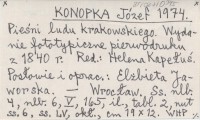 KONOPKA Józef 1974.
Pieśni ludu krakowskiego. Wyda-
nie fototypiczne pierwodruku
z 1840 r. Red: Helena Kapełuś.
Posłowie i oprac: Elżbieta Ja-
worska. — Wrocław, Ss. nlb.
4, nlb. 6, V, 165, il, tabl. 2, nut
ss. 6, ss. LV, okł., cm 19 x 12. WHP